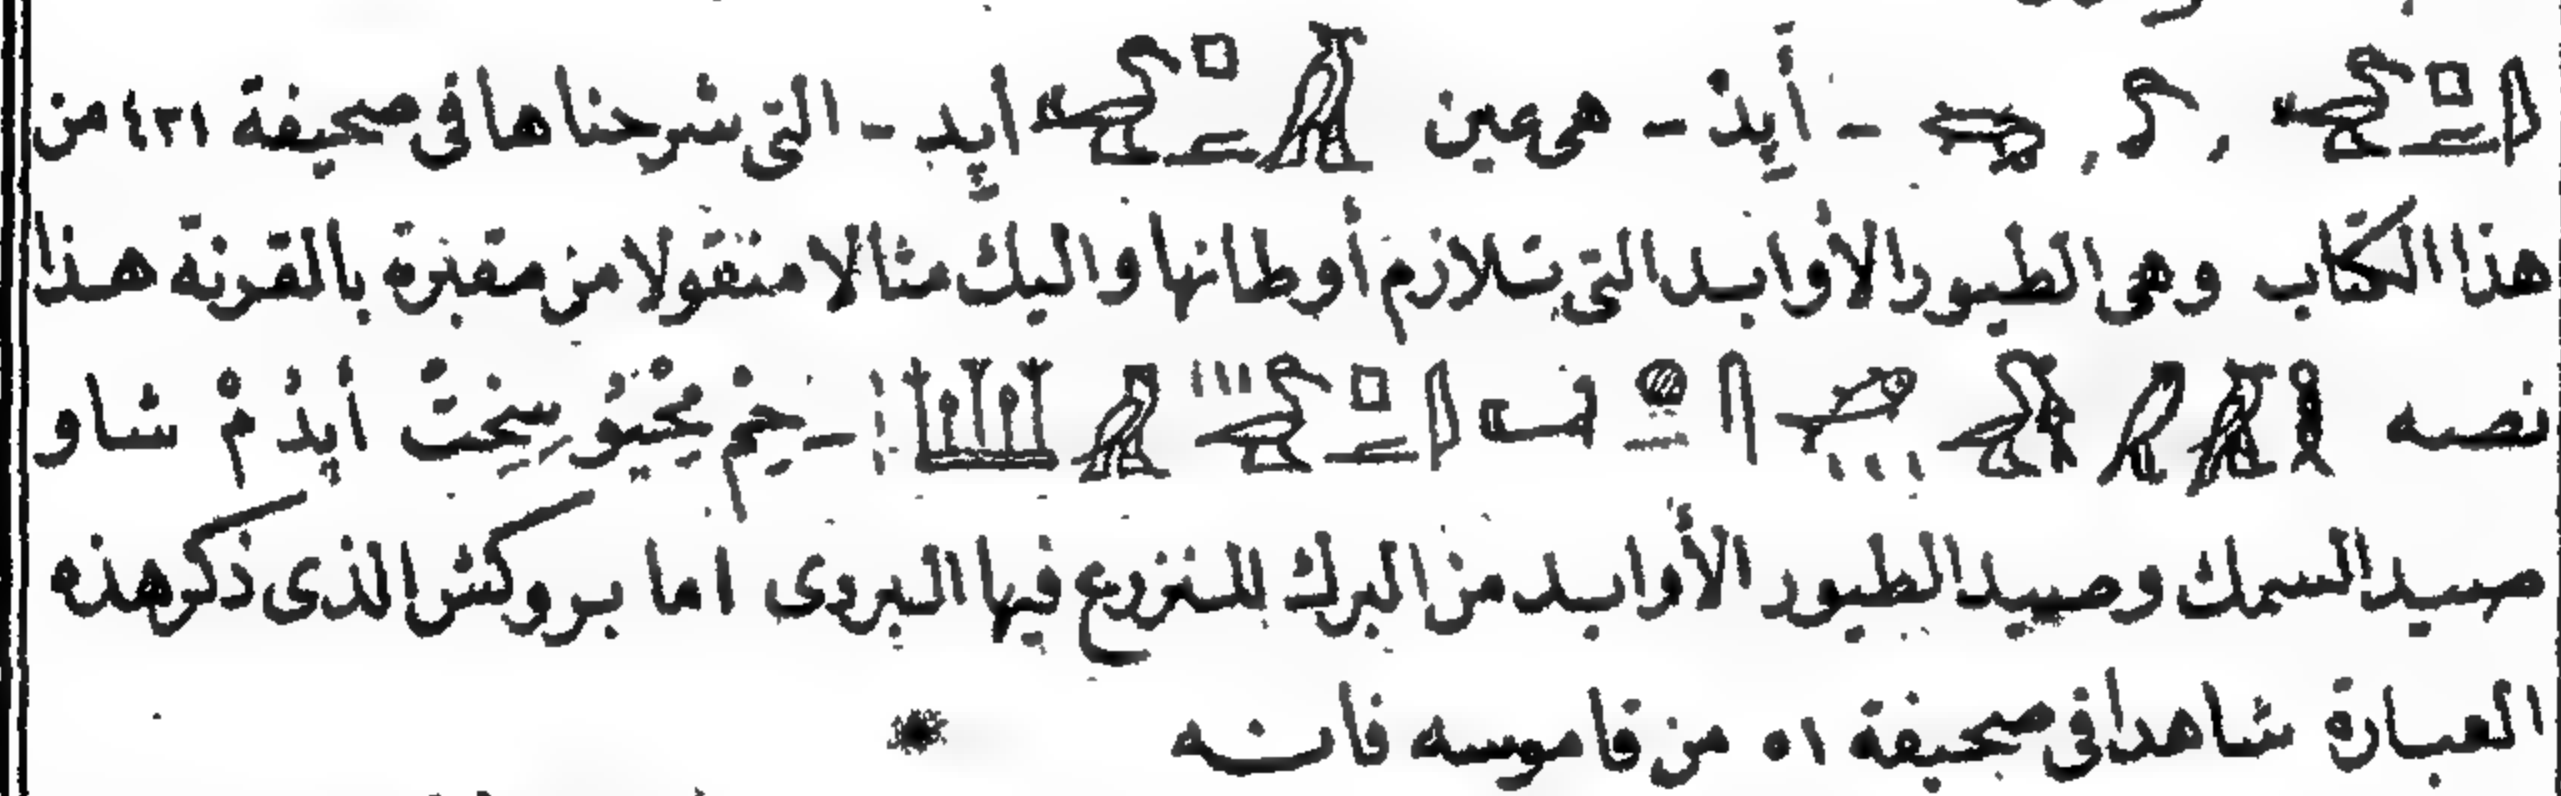 - أَپِدْ - هى عين أپد - التى شرحناها فى صحيفة ٤٣١ من
هذا الكتاب وهى الطيور الأوابد التى تلازم أوطانها واليك مثالا منقولا من مقبرة بالقرنة هذا
نصه - حِمْ مِحْيُو سِخِتْ أَپِدُ مْ شاو
صيد السمك وصيد الطيور الأوابد من البرك المنزوع فيها البروى اما بروكش الذى ذكر هذه
العبارة شاهدا فى صحيفة ٥١ من قاموسه فانه *